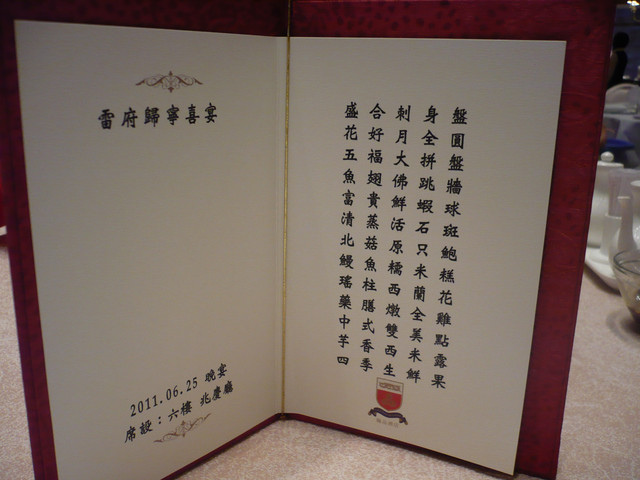 雷府歸寧喜宴
2011.06.25 晚宴
席設：六樓 兆慶廳
盛合刺身盤
花好月全圓
五福大拼盤
魚翅佛跳牆
富貴鮮蝦球
清蒸活石斑
北菇原只鮑
鰻魚糯米糕
瑤柱西蘭花
藥膳燉全雞
中式雙美點
芋香西米露
四季生鮮果